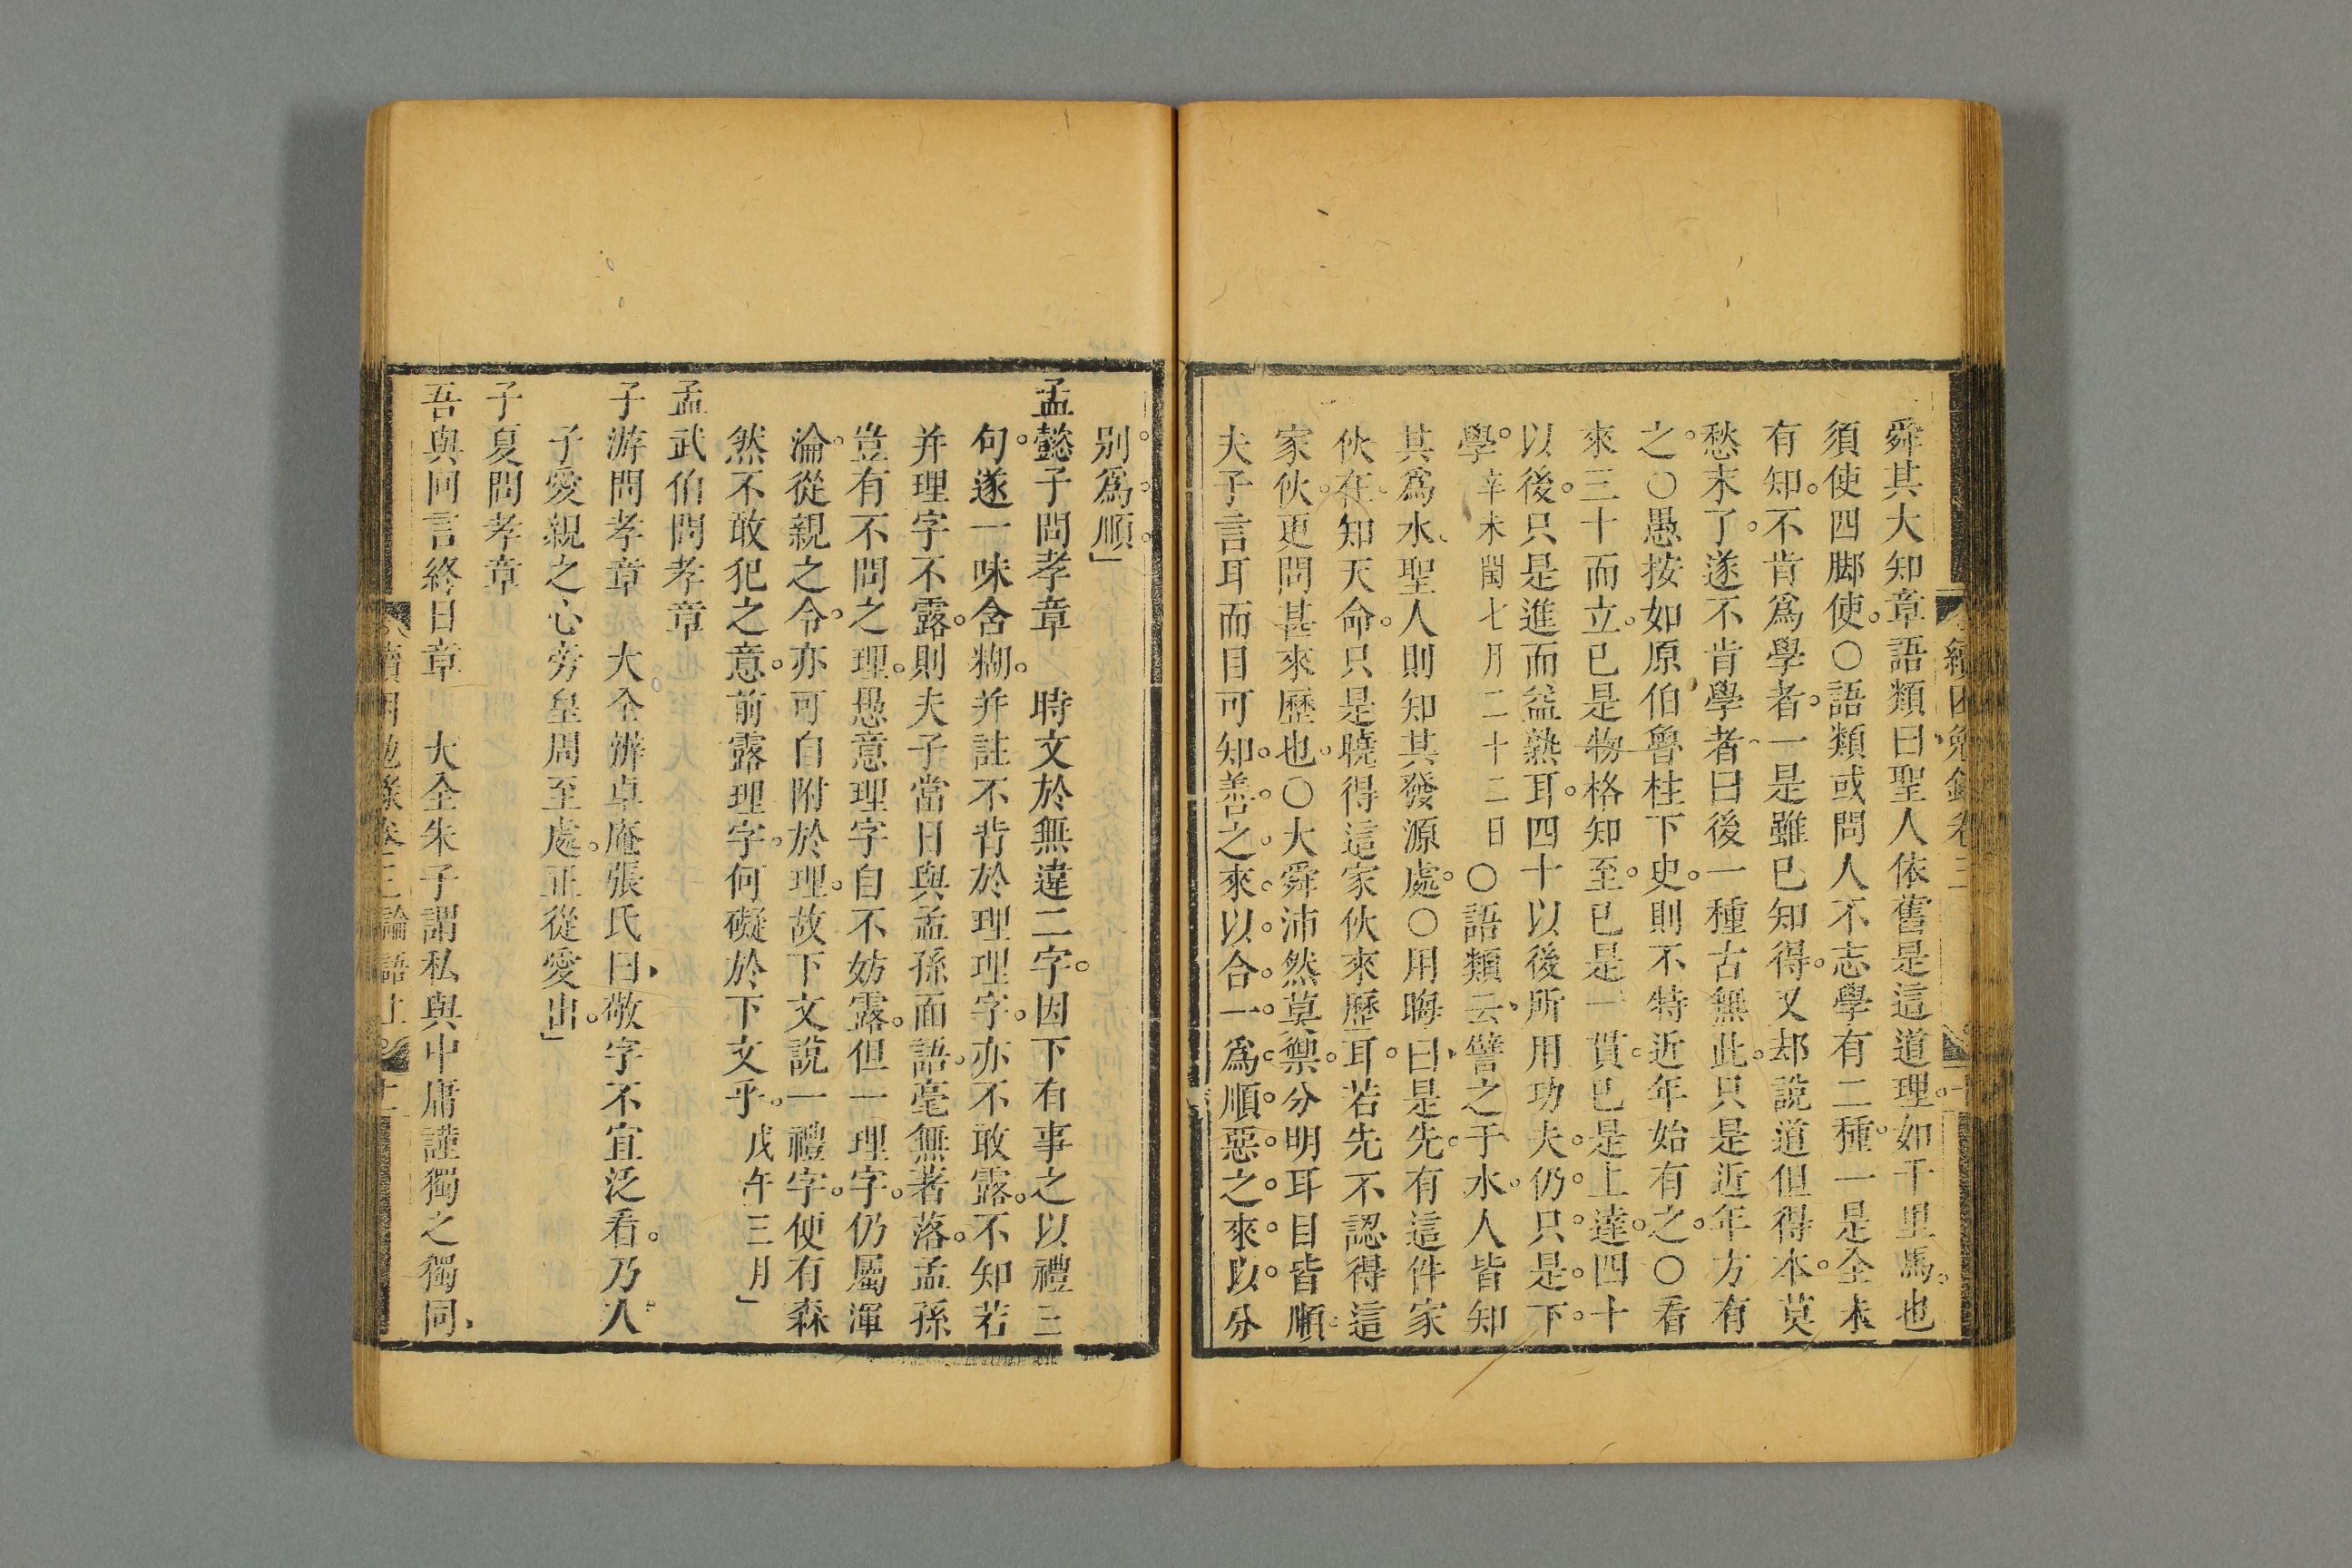 舜其大知章語類曰聖人依舊是這道理如千里馬也
須使四脚使○語類或問人不志學有二種一是全未
有知不肯爲學者一是雖已知得又却說道但得本莫
愁末了遂不肯學者曰後一種古無此只是近年方有
之○愚按如原伯魯柱下史則不特近年始有之○看
來三十而立已是物格知至已是一貫已是上達四十
以後只是進而益熟耳四十以後所用功夫仍只是下
學辛未閏七月二十三日○語類云譬之于水人皆知
其爲水聖人則知其發源處○用晦曰是先有這件家
伙在知天命只是曉得這家伙來歷耳若先不認得這
家伙更問甚來歷也○大舜沛然莫禦分明耳目皆順
夫子言耳而目可知善之來以合一爲順惡之來以分
别爲順
孟懿子問孝章　時文於無違二字因下有事之以禮三
句遂一味含糊并註不背於理理字亦不敢露不知若
并理字不露則夫子當日與孟孫面語毫無著落孟孫
豈有不問之理愚意理字自不妨露但一理字仍屬渾
淪從親之令亦可自附於理故下文說一禮字便有森
然不敢犯之意前露理字何礙於下文乎戊午三月
孟武伯問孝章
子游問孝章　大全辨卓庵張氏曰敬字不宜泛看乃人
子愛親之心旁皇周至處正從愛出
子夏問孝章
吾與回言終日章　大全朱子謂私與中庸謹獨之獨同
讀困勉錄卷三論語上